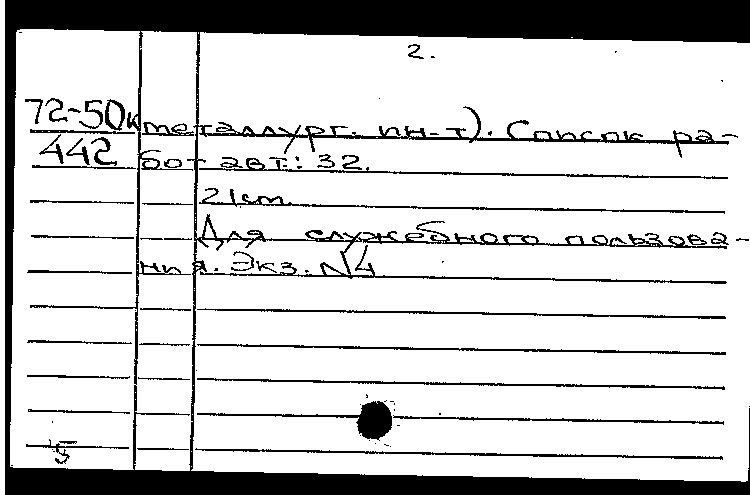 2.
72-50к металлург. ин-т). Список ра-
442 бот авт.: 32.
21 cm.
Для служебного пользова-
ния. Экз. N4
5